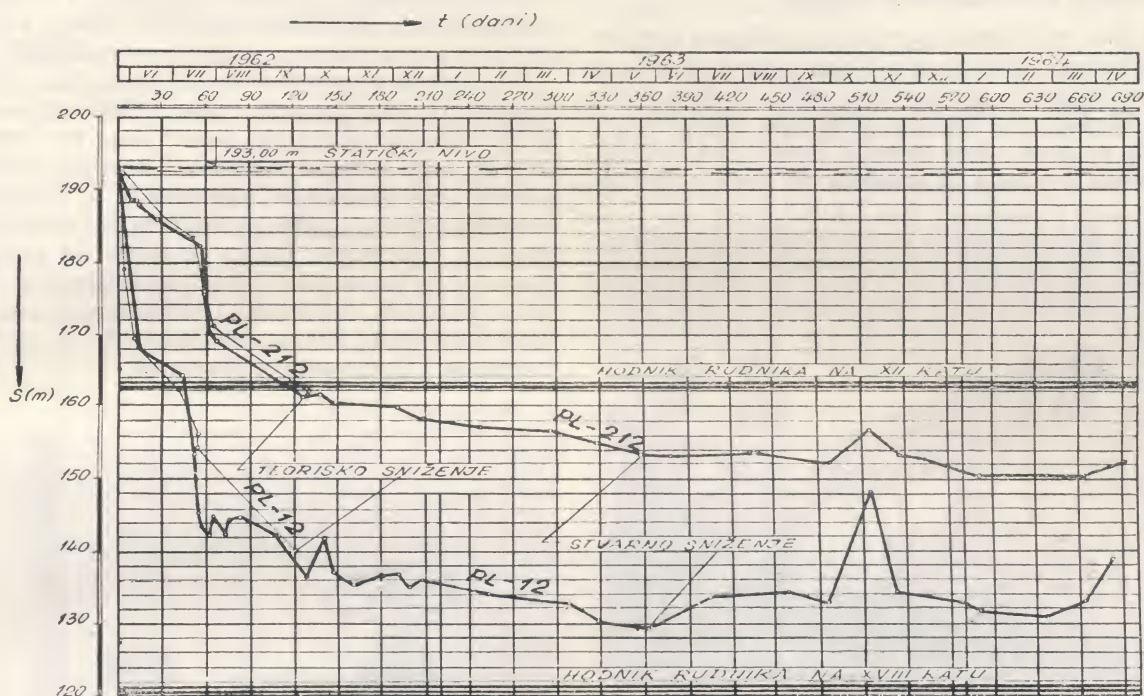 t (dani)
1962 1963 1964
VI VII VIII IX X XI XII I II III IV V VI VII VIII IX X XI XII I II III IV
30 60 90 120 150 180 210 240 270 300 330 360 390 420 450 480 510 540 570 600 630 660 690
200
193,00 m STATIČKI NIVO
190
180
170
PL-212
HODNIK RUDNIKA NA XII KATU
S(m)
160
PL-212
150
TEORISKO SNIŽENJE
PL-12
STVARNO SNIŽENJE
140
PL-12
130
HODNIK RUDNIKA NA XVIII KATU
120